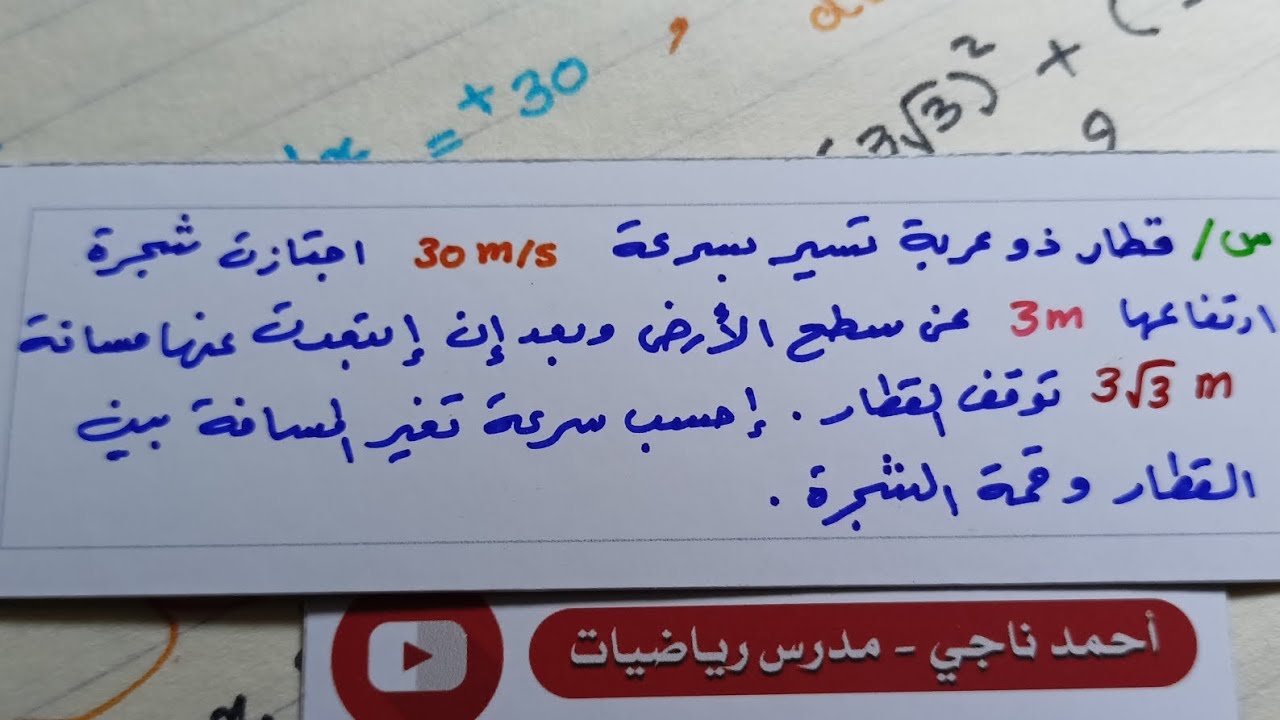 = +30 ,
(3√3)² +
9
س/ قطار ذو عربة تسير بسرعة 30 m/s اجتازت شجرة
ارتفاعها 3m عن سطح الأرض وبعد إن إبتعدت عنها مسافة
3√3 m توقف القطار. إحسب سرعة تغير المسافة بين
القطار وقمة الشجرة.
أحمد ناجي - مدرس رياضيات